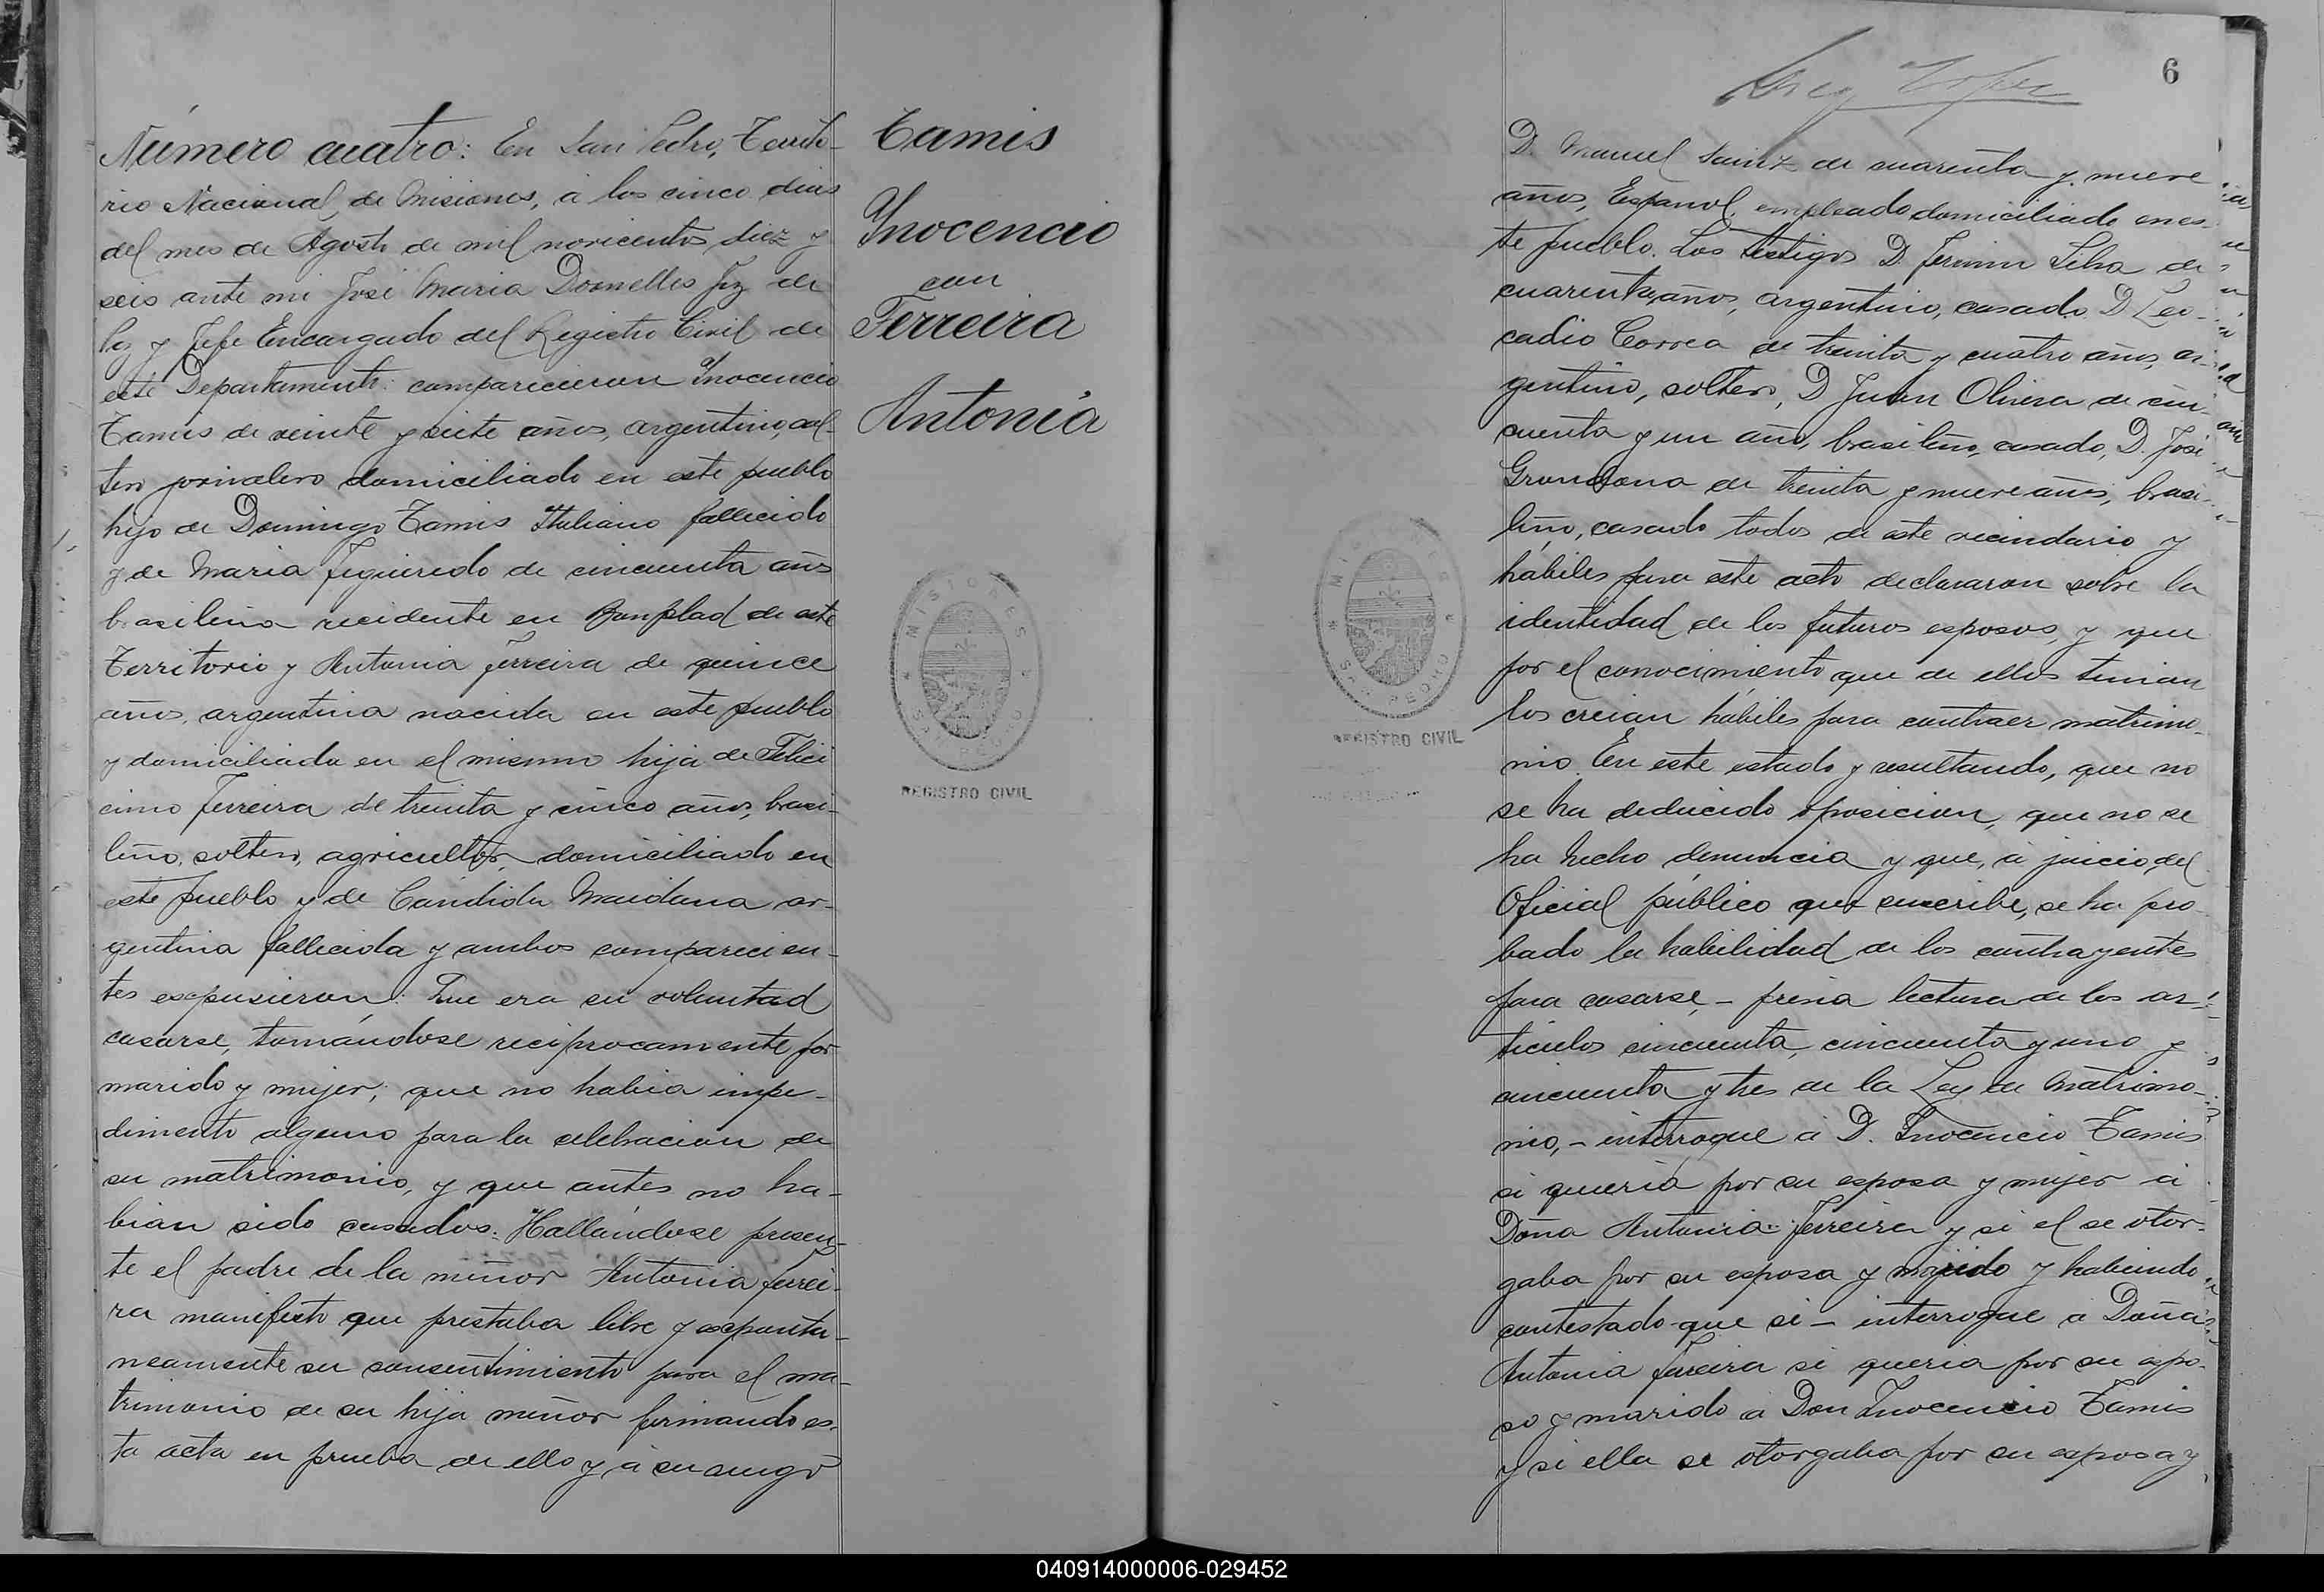 Número cuatro: En San Pedro, Territo-
rio Nacional de Misiones, á los cinco dias
del mes de Agosto de mil novicentos diez y
seis ante mi José Maria Dornelles Jez de
Paz y Jefe Encargado del Registro Civil de
este Departamento: comparecieron Inocencio
Tamis de veinte y siete años, argentino, sol-
tero jornalero domiciliado en este pueblo
hijo de Domingo Tamis Italiano fallecido
y de Maria Figueredo de cincuenta años
brasilera recidente en Bonplad de este
Territorio y Antonia Ferreira de quince
años, argentina nacida en este pueblo
y domiciliada en el mismo hija de Felici
cimo Ferreira de treinta y cinco años, brasi-
leño, soltero, agricultor, domiciliado en
este pueblo y de Candida Maidana ar-
gentina fallecida y ambos comparecien-
tes expusieron: Que era su voluntad
casarse, tomándose reciprocamente por
marido y mujer; que no habia impe-
dimento alguno para la celebracion de
su matrimonio, y que antes no ha-
bian sido casados: Hallándose presen-
te el padre de la menor Antonia Ferrei-
ra manifesto que prestaba libre y espontá-
neamente su consentimiento para el ma-
trimonio de su hija menor firmando es-
ta acta en prueba de ello y á su ruego
Tamis
Inocencio
con
Ferreira
Antonia
MISIONES
SAN PEDRO
REGISTRO CIVIL
6
D. Manuel Sainz de cuarenta y nueve
años, Español, empleado domiciliado en es-
te pueblo. Los testigos D. Fermin Silva de
cuarenta años, argentino, casado D Leo-
cadio Correa de treinta y cuatro años, ar-
gentino, soltero, D Juan Olivera de cin-
cuenta y un año, brasileño, casado, D. José
Grondona de treinta y nueve años, brasi-
leño, casado todos de este vecindario y
hábiles para este acto declararon sobre la
identidad de los futuros esposos, y que
por el conocimiento que de ellos tenian
los creian hábiles para contraer matrimo-
nio. En este estado y resultando, que no
se ha deducido oposicion, que no se
ha hecho denuncia y que, á juicio del
Oficial público que suscribe, se ha pro-
bado la habilidad de los contrayentes
para casarse, - previa lectura de los ar-
ticulos cincuenta, cincuenta y uno y
cincuenta y tres de la Ley de Matrimo-
nio, - interrogue á D. Inocencio Tamis
si queria por su esposa y mujer á
Doña Antonia Ferreira y si el se otor-
gaba por su esposo y marido y habiendo
contestado que si - interrogue á Doña
Antonia Ferreira si queria por su espo-
so y marido á Don Inocencio Tamis
y si ella se otorgaba por su esposa y
MISIONES
SAN PEDRO
REGISTRO CIVIL
040914000006-029452